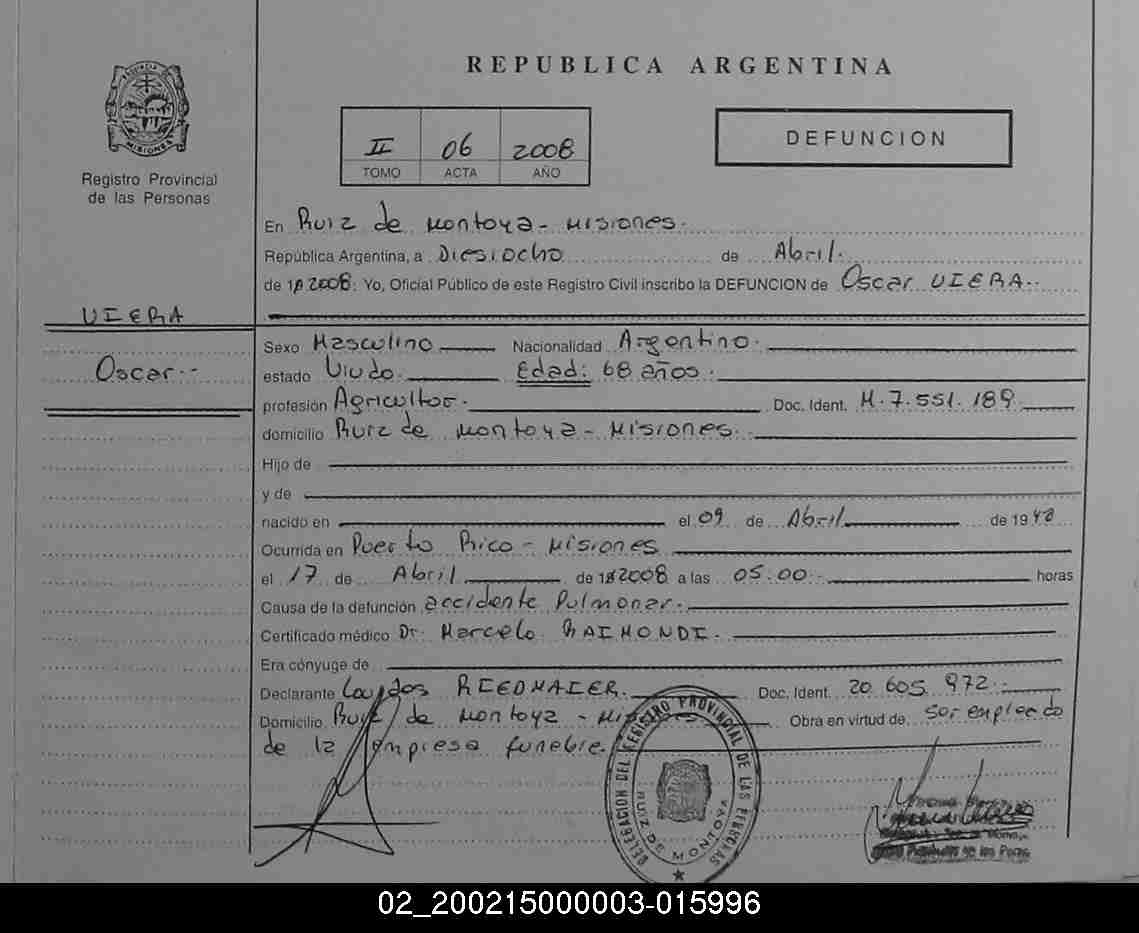 REPUBLICA ARGENTINA
PROVINCIA DE
MISIONES
Registro Provincial
de las Personas
II 06 2008
TOMO ACTA AÑO
DEFUNCION
En Ruiz de Montoya - Misiones.
República Argentina, a Diesiocho de Abril.
de 19 2008. Yo, Oficial Público de este Registro Civil inscribo la DEFUNCION de Oscar VIERA.
VIERA
Oscar
Sexo Masculino Nacionalidad Argentino.
estado Viudo. Edad: 68 años.
profesión Agricultor. Doc. Ident. M. 7.551.189
domicilio Ruiz de Montoya - Misiones.
Hijo de
y de
nacido en el 09 de Abril de 19
Ocurrida en Puerto Rico - Misiones
el 17 de Abril de 19 2008 a las 05:00 horas
Causa de la defunción accidente Pulmonar.
Certificado médico Dr. Marcelo RAIMONDI.
Era cónyuge de
Declarante RIEDMAIER. Doc. Ident. 20.605.972
Domicilio Ruiz de Montoya - Misiones Obra en virtud de. ser empleado
de la empresa funebre.
DELEGACION DEL REGISTRO PROVINCIAL DE LAS PERSONAS
RUIZ DE MONTOYA
02_200215000003-015996